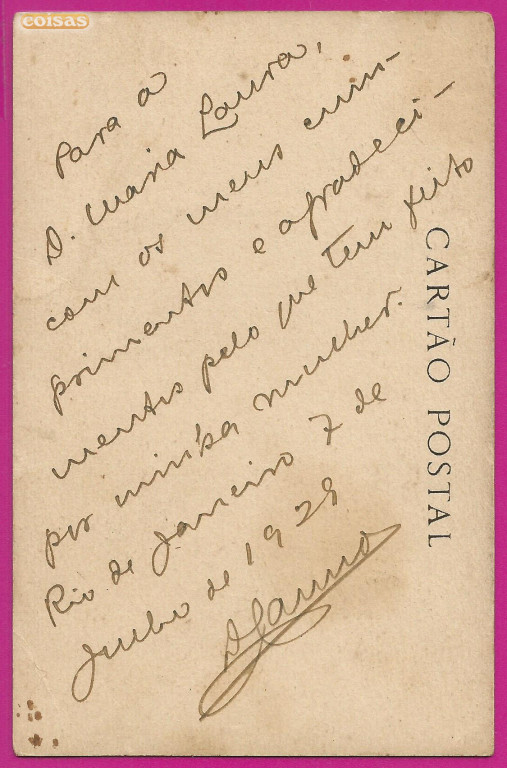 coisas
Para a
D. Maria Laura,
com os meus cum-
primentos e agradeci-
mentos pelo que tem feito
por minha mulher.
Rio de Janeiro 7 de
de 1928
CARTÃO POSTAL